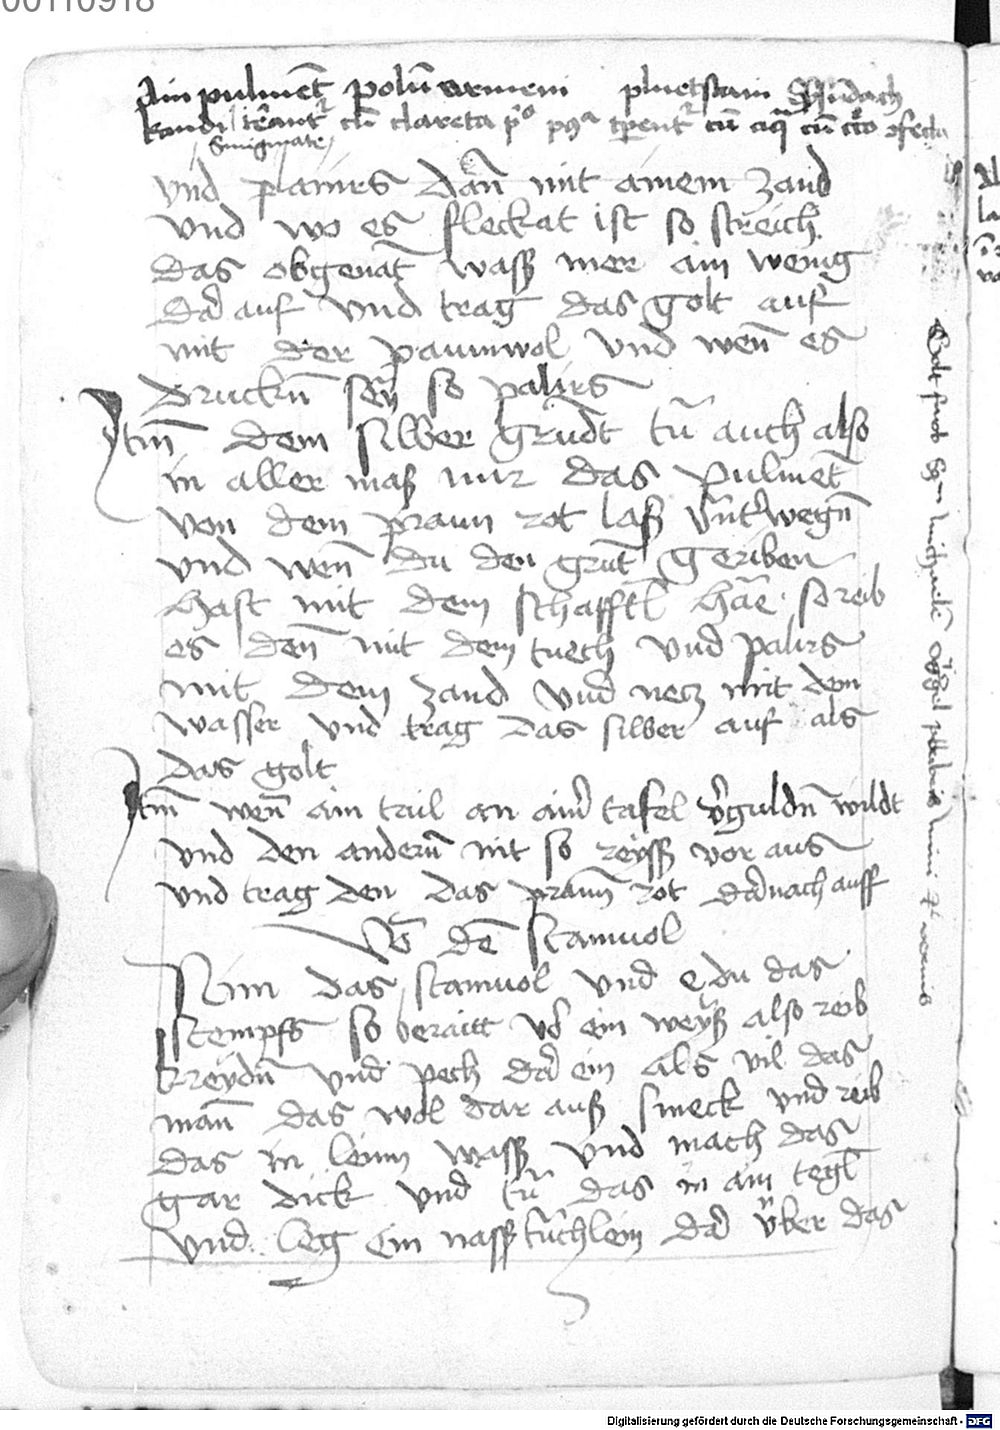 00110918
Ain pulmēt polū armeni pluetstain
kandi cū clareta
vnd planirs dān̄ mit ainem zand
vnd wo es fleckat ist so streich
das obgenāt wass mer ain wenig
dar auf vnd trag das golt auf
mit der paumwol vnd wen̄ es
druckn̄ sey so palirs
Itm̄ dem silber grundt tu auch also
in aller mass nur das pulmet
von dem praun rot lass vnterwegn̄
vnd wen̄ du den grūt geriben
hast mit dem schafftl hāe so reib
es den̄ mit dem tuech vnd palirs
mit dem zand vnd netz mit den
wasser vnd trag das silber auf als
das golt
Itm̄ wen̄ ain tail an ainer tafel verguldn̄ wildt
vnd den andern̄ nit so reyss vor aus
vnd trag den das praun̄ rot darnach auff
Vō dē stamuol
Nim das stamuol vnd e du das
stempfs so beraitt vor ein weyss also reib
kreydn̄ vnd pech dar ein als vil das
man̄ das wol dar auss smeck vnd reib
das in leim wass vnd mach das
gar dick vnd tu das in ain tegl
vnd leg ein nass tuchlein dar vber das
Digitalisierung gefördert durch die Deutsche Forschungsgemeinschaft - DFG